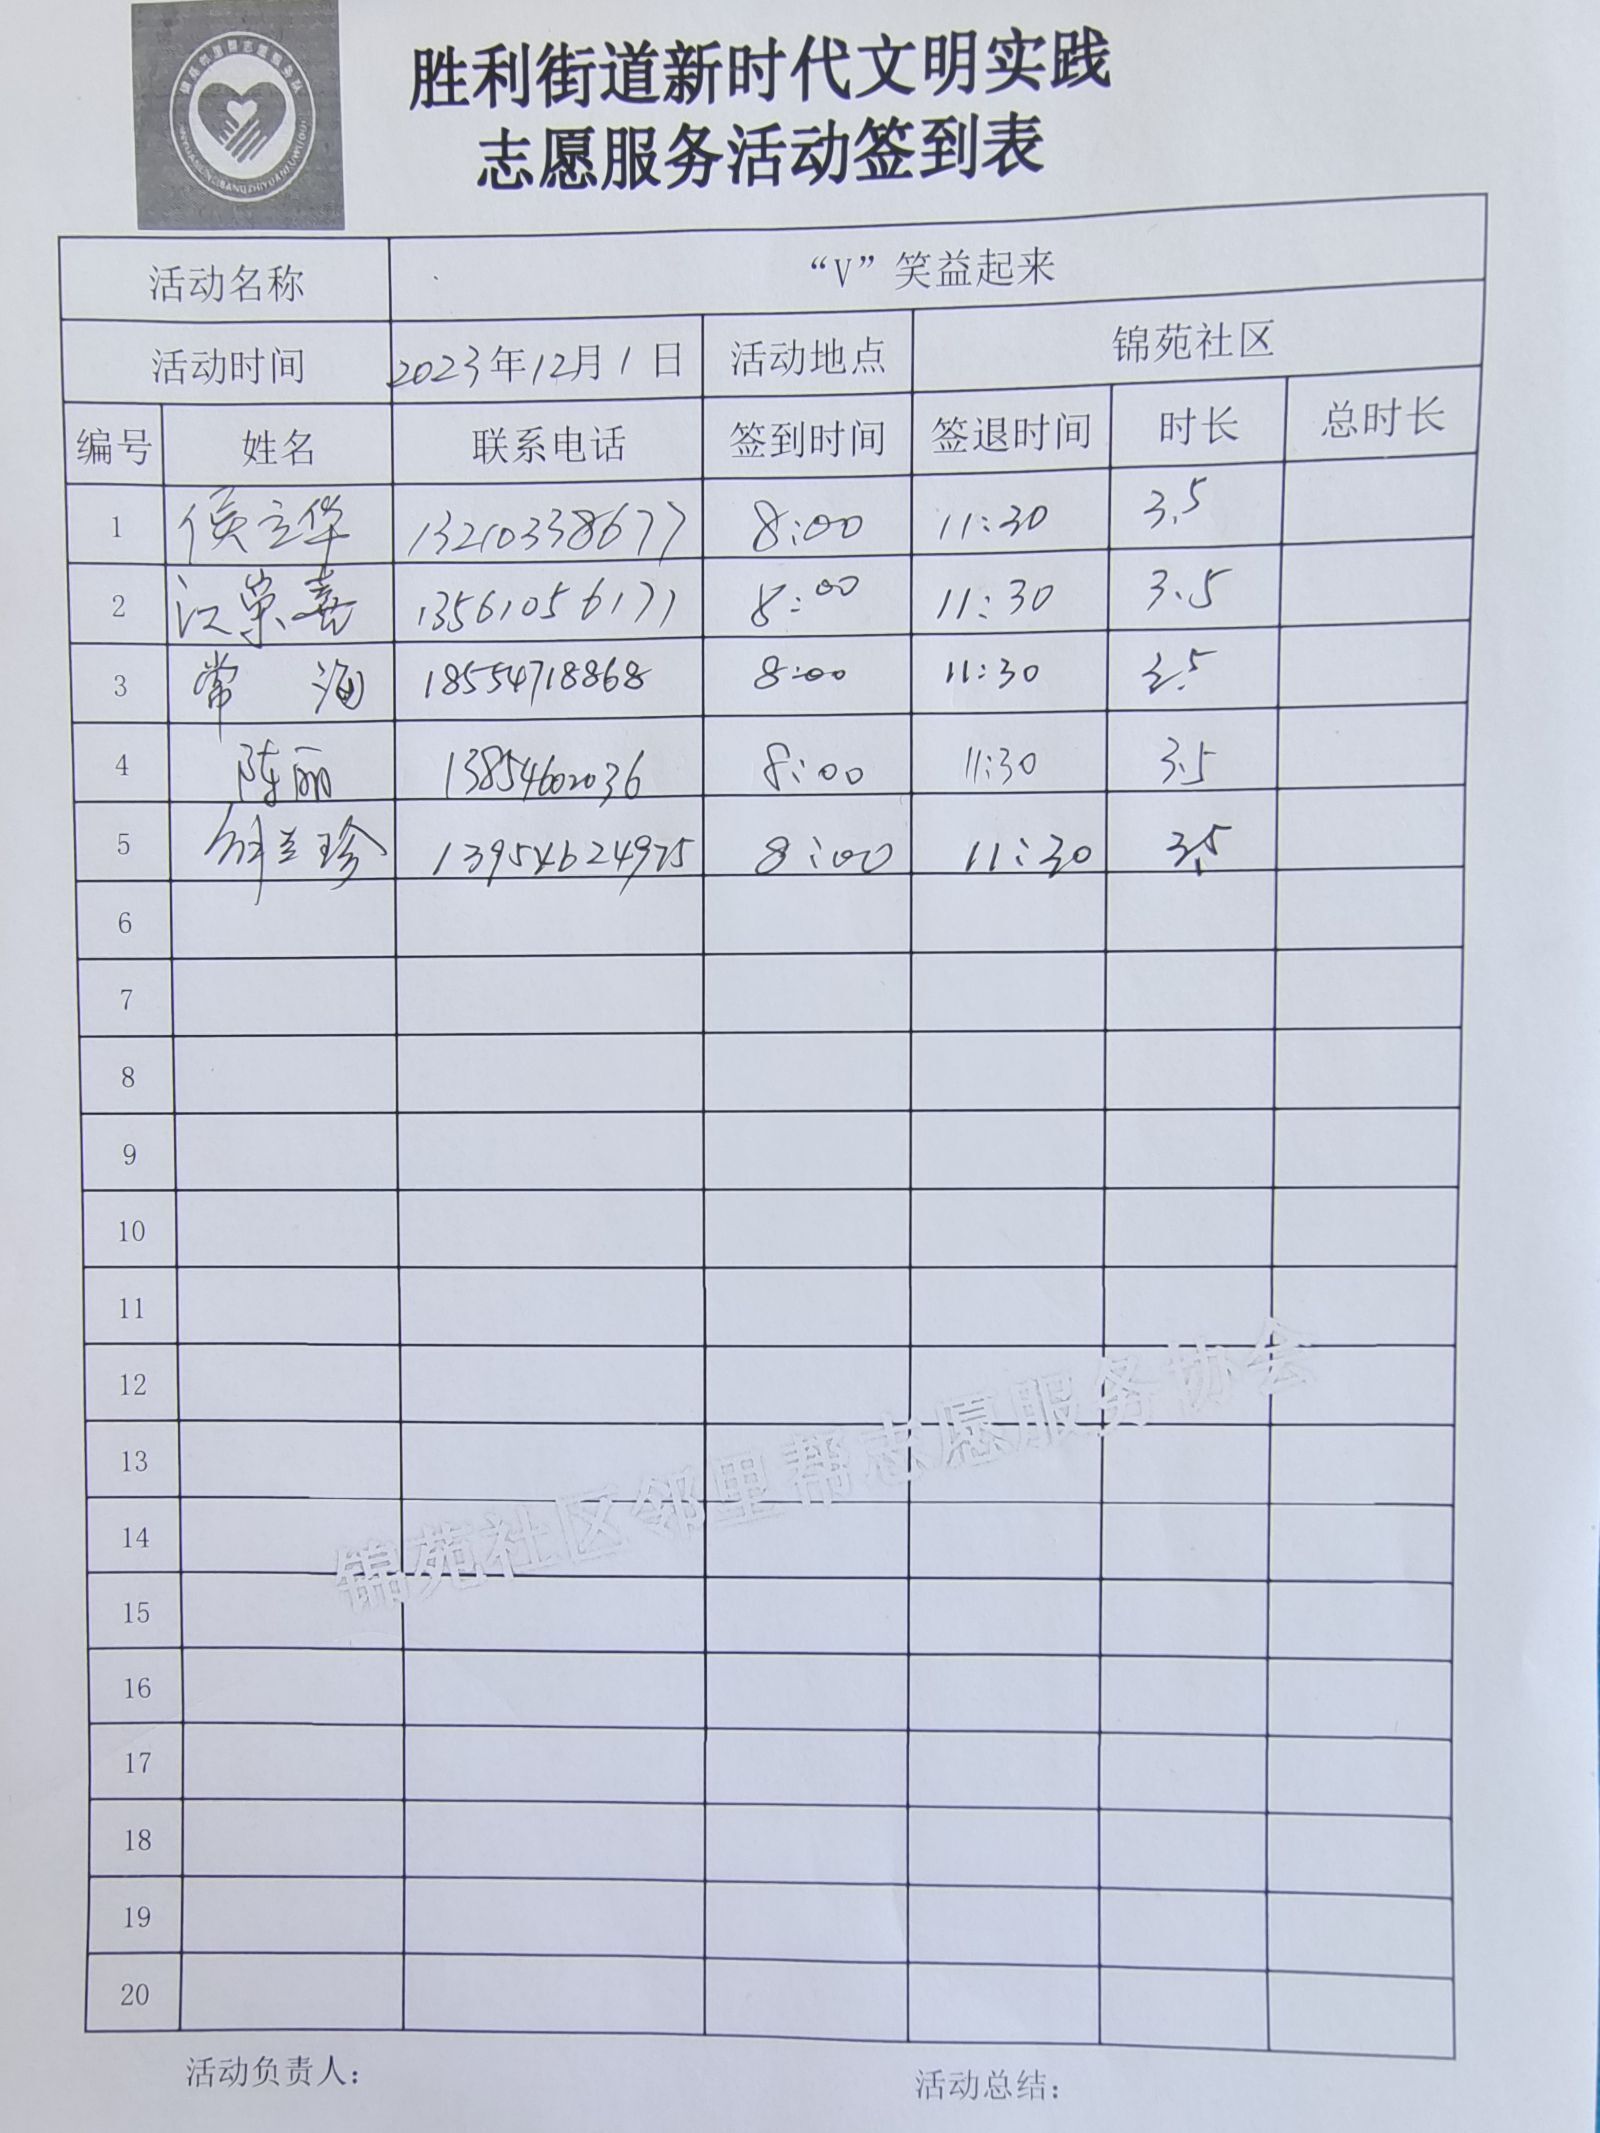 锦苑邻里帮志愿服务队
胜利街道新时代文明实践
志愿服务活动签到表
活动名称 “V”笑益起来
活动时间 2023年12月1日 活动地点 锦苑社区
编号 姓名 联系电话 签到时间 签退时间 时长 总时长
1 侯立华 13210338677 8:00 11:30 3.5
2 江荣喜 13561056177 8:00 11:30 3.5
3 常海 18554718868 8:00 11:30 3.5
4 陈丽 13854602036 8:00 11:30 3.5
5 兰珍 13954624975 8:00 11:30 3.5
6
7
8
9
10
11
12
13
14
15
16
17
18
19
20
锦苑社区邻里帮志愿服务协会
活动负责人: 活动总结: